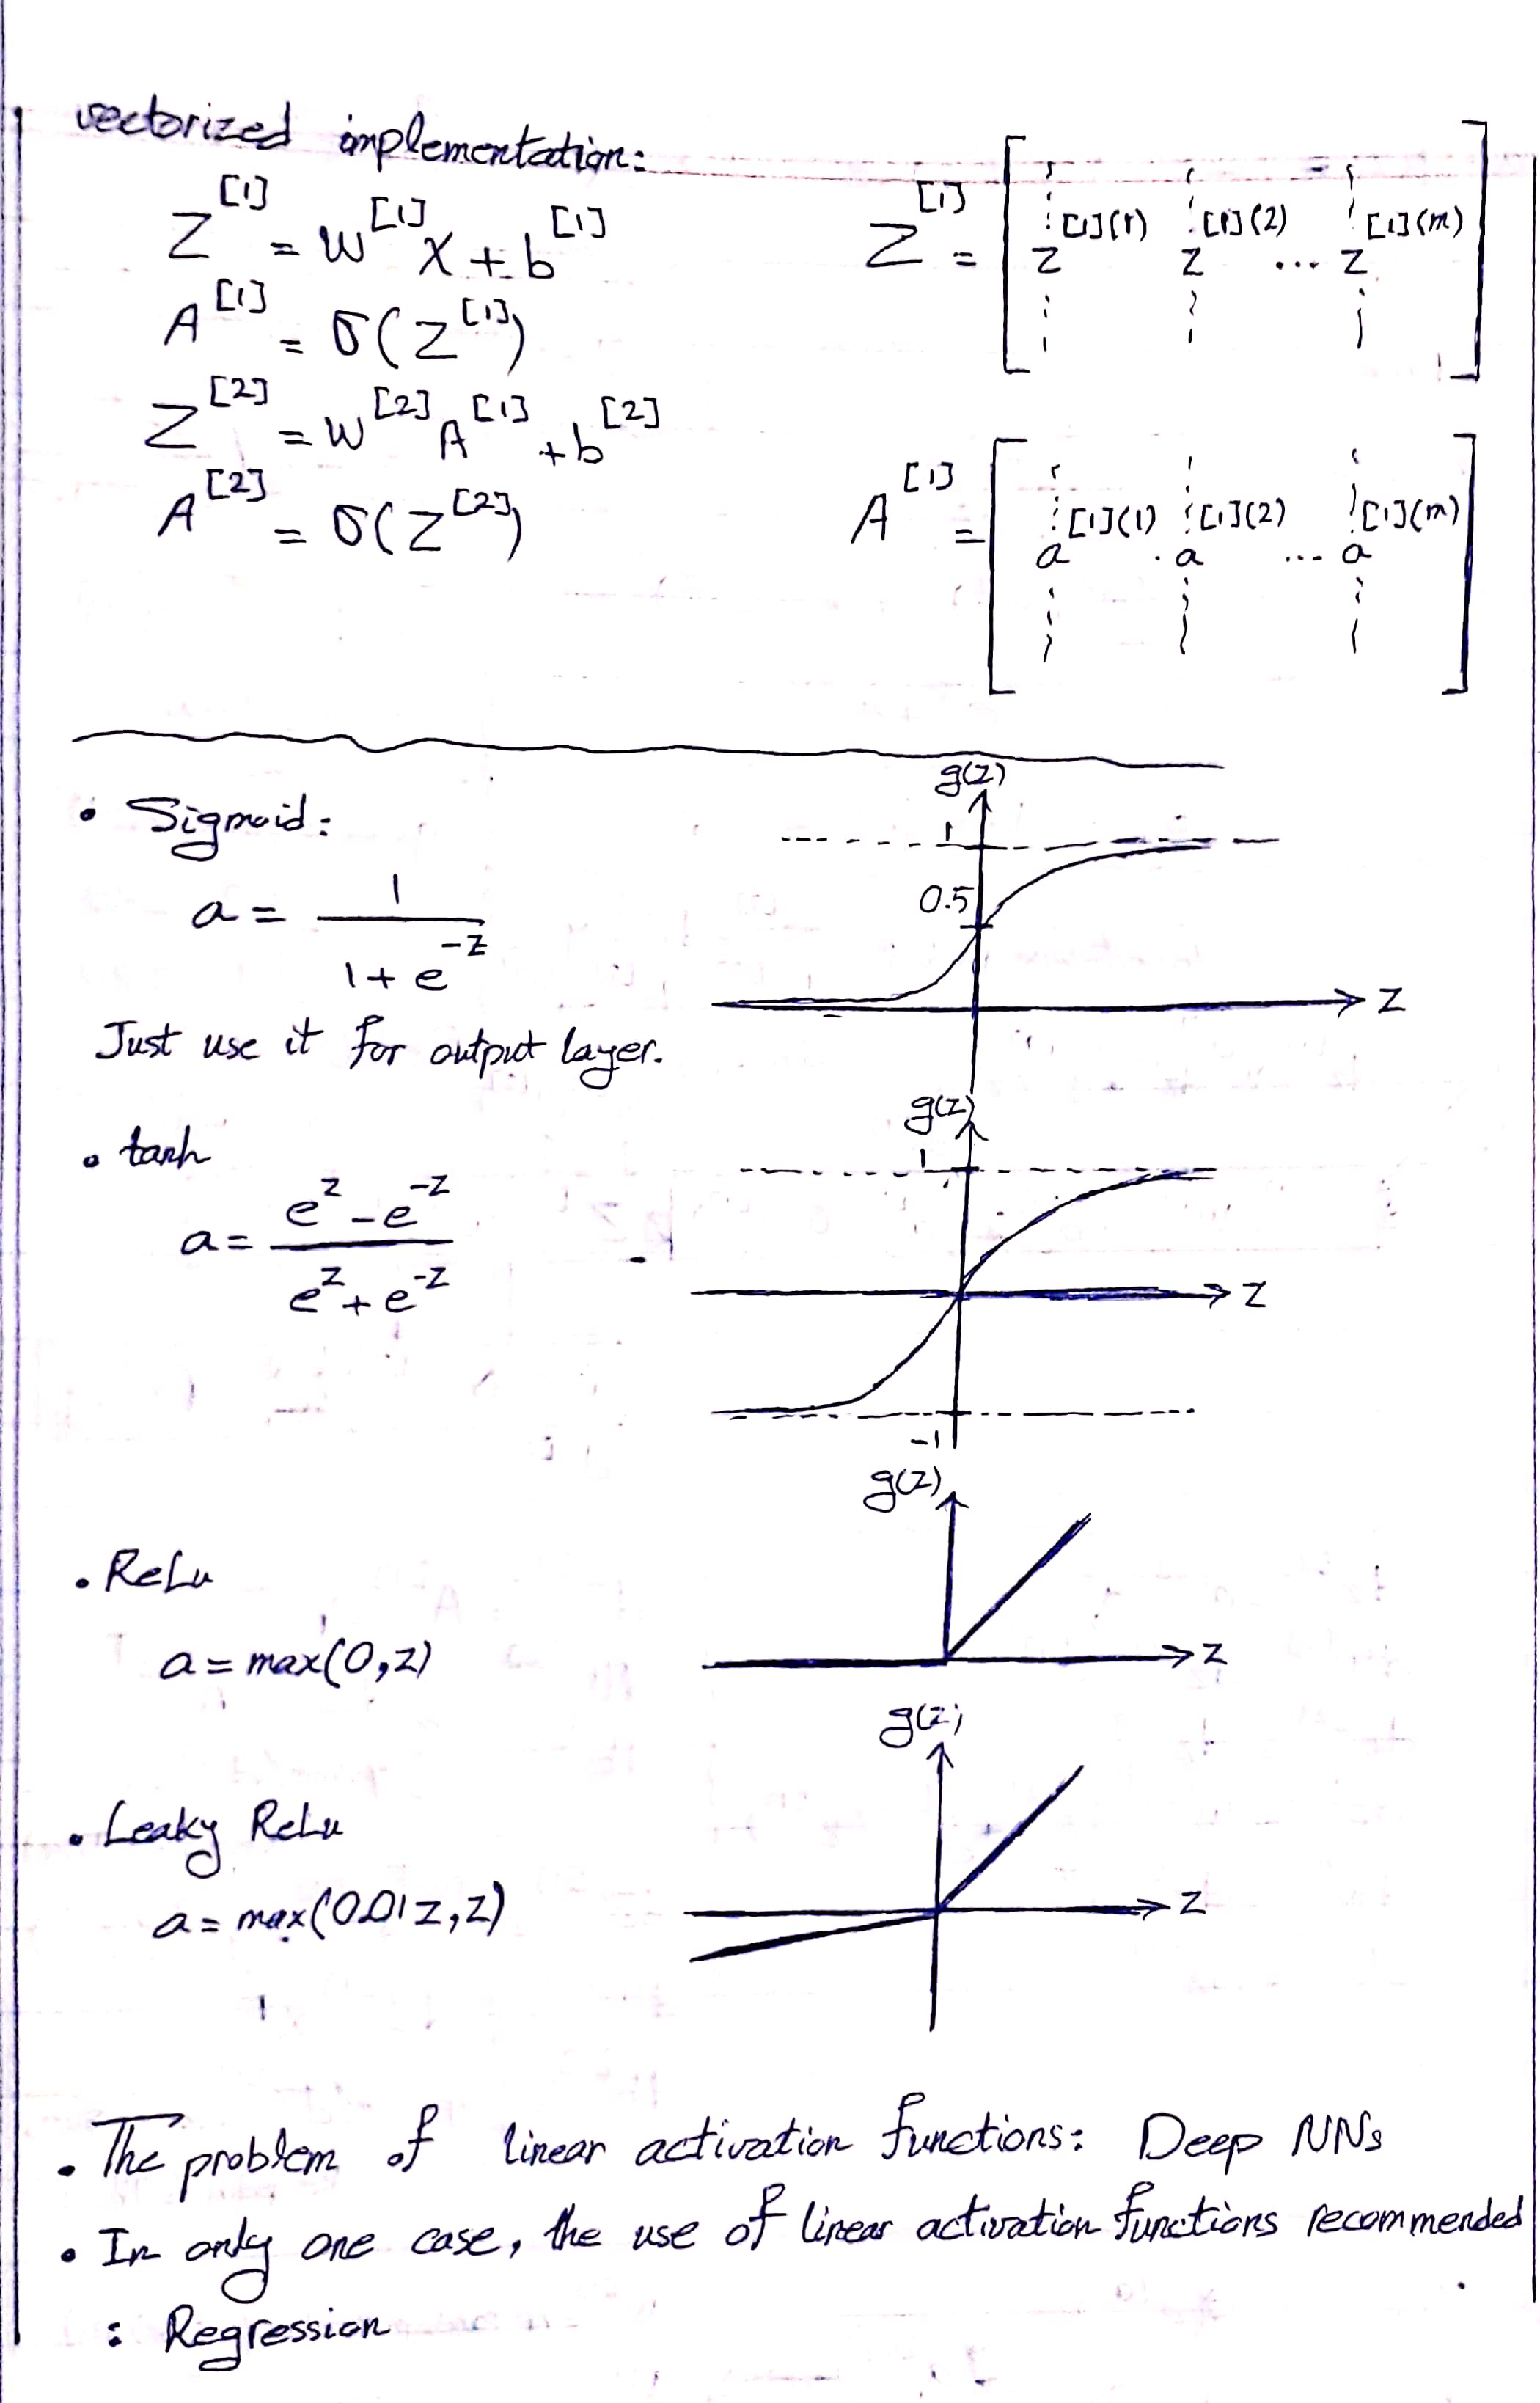 vectorized implementation:
Z^[1] = W^[1] X + b^[1]
A^[1] = σ(Z^[1])
Z^[2] = W^[2] A^[1] + b^[2]
A^[2] = σ(Z^[2])
Z^[1] = [ z^[1](1) z^[1](2) ... z^[1](m) ]
A^[1] = [ a^[1](1) a^[1](2) ... a^[1](m) ]
• Sigmoid:
a = 1 / (1 + e^-z)
Just use it for output layer.
g(z)
1
0.5
Z
• tanh
a = (e^z - e^-z) / (e^z + e^-z)
g(z)
1
Z
-1
• ReLu
a = max(0,z)
g(z)
Z
• Leaky ReLu
a = max(0.01z,z)
g(z)
Z
• The problem of linear activation functions: Deep NNs
• In only one case, the use of linear activation functions recommended
: Regression